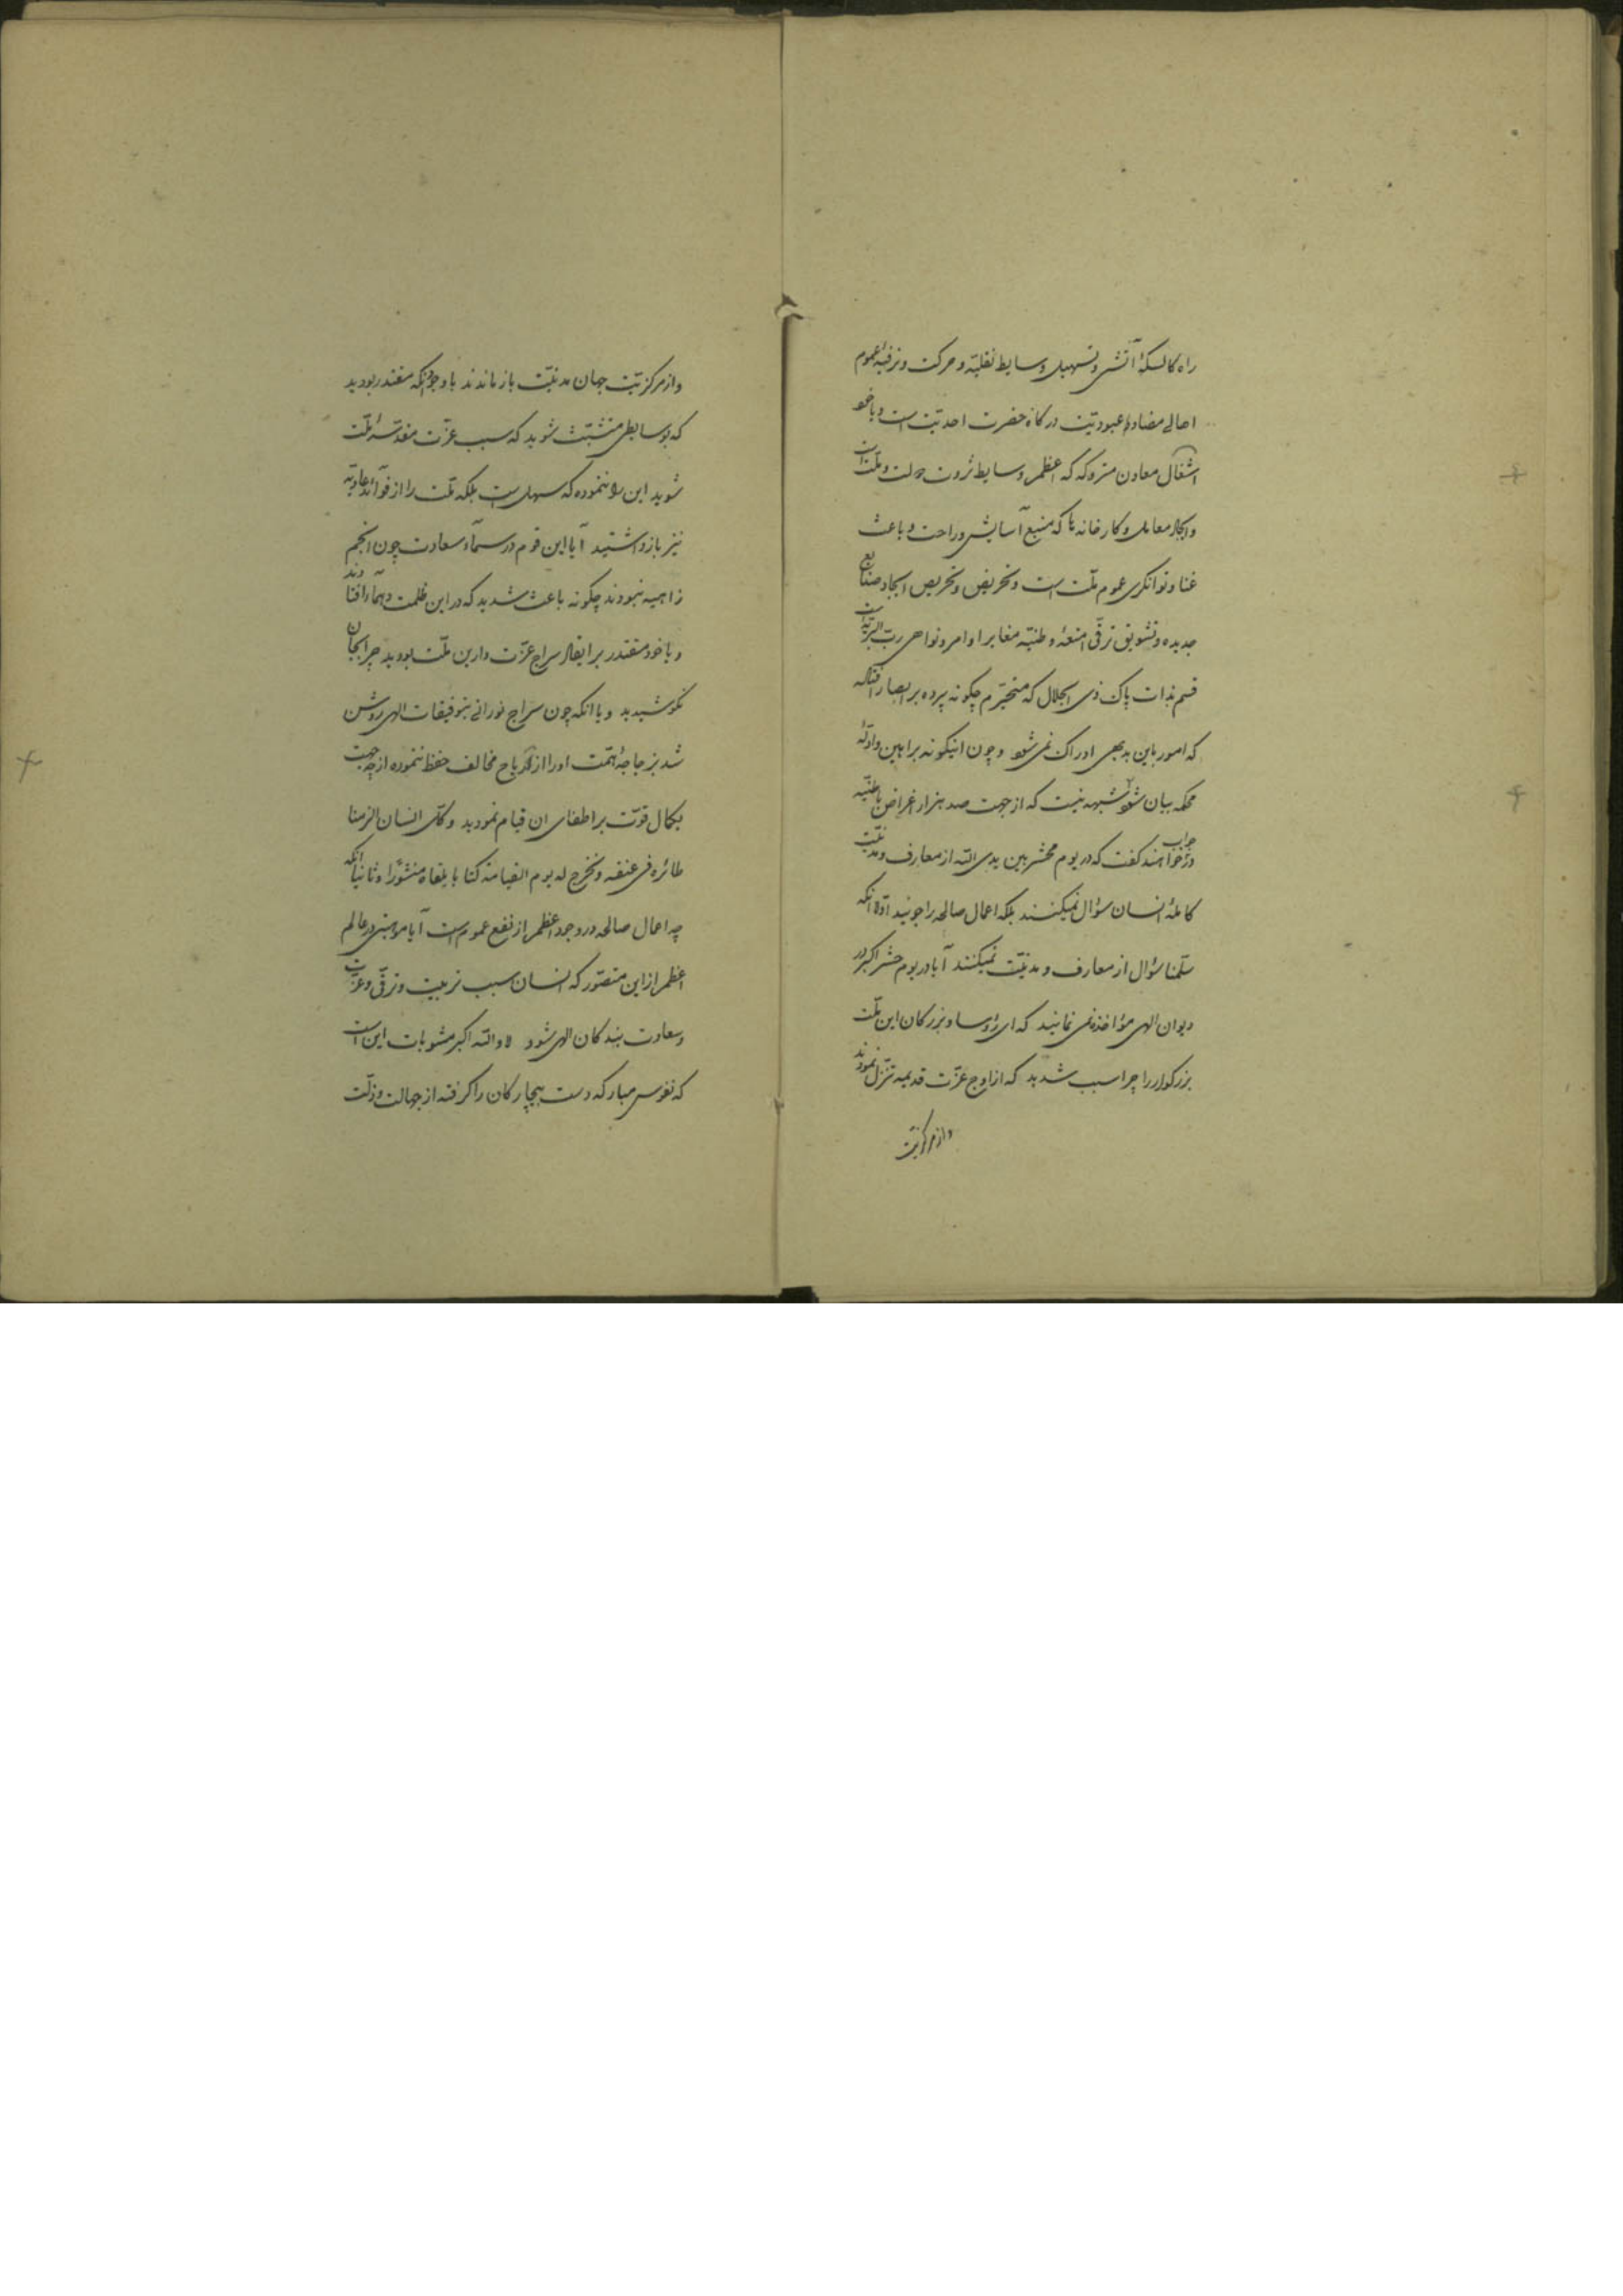 راه کالسکهٔ آتشی و تسهیل وسایط نقلیّه و حرکت و ترفیه عموم
اهالی مضاد و عبودیّت درگاه حضرت احدیّت است و یا خود
اشغال معاون متروکه که اعظم وسایط ثروت دولت و ملّت است
و ایجاد معامل و کارخانه‌ها که منبع آسایش و راحت و باعث
غنا و توانگری عموم ملّت است و تحریض و تحریص ایجاد صنایع
جدیده و تشویق ترقّی امتعهٔ وطنیّه مغایر اوامر و نواهی ربّ البریّه است
قسم بذات پاک ذی الجلال که متحیّرم چگونه پرده بر ابصار افتاده
که امور باین بدیهی ادراک نمی‌شود و چون اینگونه براهین و ادلّه
محکمه بیان شود شبهه نیست که از جهت صد هزار اغراض باطنیّه
در جواب خواهند گفت که در یوم محشر بین یدی الله از معارف و مدنیّت
کاملهٔ انسان سؤال نمیکنند بلکه اعمال صالحه را جویند اوّلا انکه
سلّمنا سؤال از معارف و مدنیّت نمیکنند آیا در یوم حشر اکبر در
دیوان الهی مؤاخذه نمی نمایند که ای رؤسا و بزرکان این ملّت
بزرکوار را چرا سبب شدید که از اوج عزّت قدیمه تنزّل نمودند
و از مرکزیّت
و از مرکزیّت جهان مدنیّت باز ماندند با وجود انکه مقتدر بودید
که بوسایطی متشبّث شوید که سبب عزّت مقدّسهٔ ملّت
شوید این را ننموده که سهل است بلکه ملّت را از فوائد عادیّه
نیز باز داشتید آیا این قوم در سماء سعادت چون انجم
زاهیه نبودند چگونه باعث شدید که در این ظلمت دهماء افتادند
و یا خود مقتدر بر ایقاد سراج عزّت دارین ملّت بودید چرا بجان
نکوشیدید و یا انکه چون سراج نورانی بتوفیقات الهی روشن
شد بزجاجهٔ همّت او را از اریاح مخالف حفظ ننموده از چه جهت
بکمال قوّت بر اطفای ان قیام نمودید و کلّ انسان الزمنا
طائره فی عنقه و نخرج له یوم القیامة کتابا یلقاه منشورًا و ثانیا انکه
چه اعمال صالحه در وجود اعظم از نفع عموم است آیا موهبتی در عالم
اعظم از این متصوّر که انسان سبب تربیت و ترقّی و عزّت
و سعادت بندکان الهی شود لا والله اکبر مثوبات این است
که نفوس مبارکه دست بیچارکان را کرفته از جهالت و ذلّت